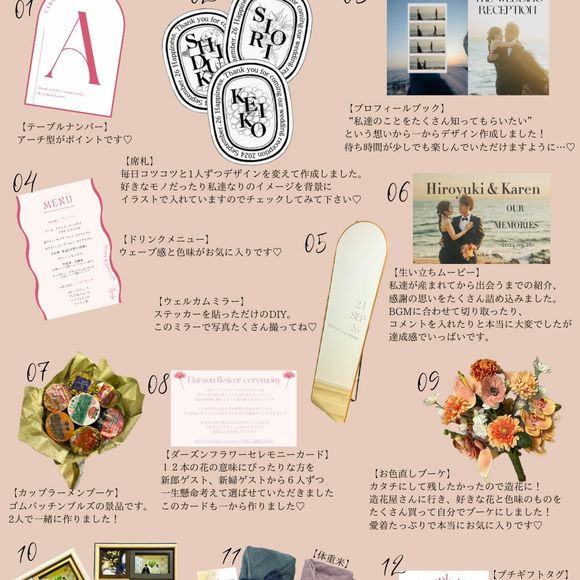 01
A
【テーブルナンバー】
アーチ型がポイントです♡
SHIORI
KEIKO
Thank you for coming our wedding reception 2024
September 26 Happiness.
【席札】
毎日コツコツと1人ずつデザインを変えて作成しました。
好きなモノだったり私達なりのイメージを背景に
イラストで入れていますのでチェックしてみて下さい♡
THE WEDDING
RECEPTION
【プロフィールブック】
“私達のことをたくさん知ってもらいたい”
という想いから一からデザイン作成しました！
待ち時間が少しでも楽しんでいただけますように…♡
04
MENU
【ドリンクメニュー】
ウェーブ感と色味がお気に入りです♡
05
【ウェルカムミラー】
ステッカーを貼っただけのDIY。
このミラーで写真たくさん撮ってね♡
24
SEP
26
06
Hiroyuki & Karen
OUR
MEMORIES
2024.09.26
【生い立ちムービー】
私達が産まれてから出会うまでの紹介、
感謝の思いをたくさん詰め込みました。
BGMに合わせて切り取ったり、
コメントを入れたりと本当に大変でしたが
達成感でいっぱいです。
07
【カップラーメンブーケ】
ゴムパッチンブルズの景品です。
2人で一緒に作りました！
08
Darson flower ceremony
【ダーズンフラワーセレモニーカード】
１２本の花の意味にぴったりな方を
新郎ゲスト、新婦ゲストから６人ずつ
一生懸命考えて選ばせていただきました
このカードも一から作りました♡
09
【お色直しブーケ】
カタチにして残したかったので造花に！
造花屋さんに行き、好きな花と色味のものを
たくさん買って自分でブーケにしました！
愛着たっぷりで本当にお気に入りです♡
10
11
【体重米】
12
【プチギフトタグ】